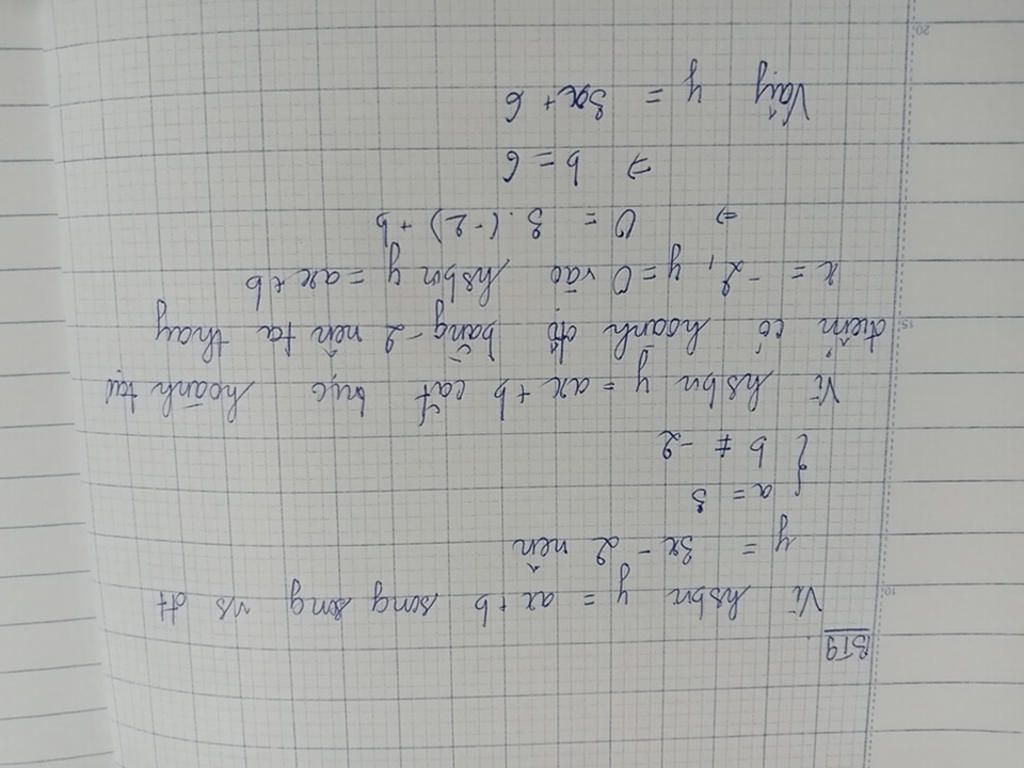 BT9
Vì hsbn y = ax + b song song v/s đt
y = 3x - 2 nên
{ a = 3
b ≠ -2
Vì hsbn y = ax + b cắt trục hoành tại
điểm có hoành độ bằng -2 nên ta thay
x = -2, y = 0 vào hsbn y = ax + b
⇒ 0 = 3. (-2) + b
⇒ b = 6
Vậy y = 3x + 6
10
15
20